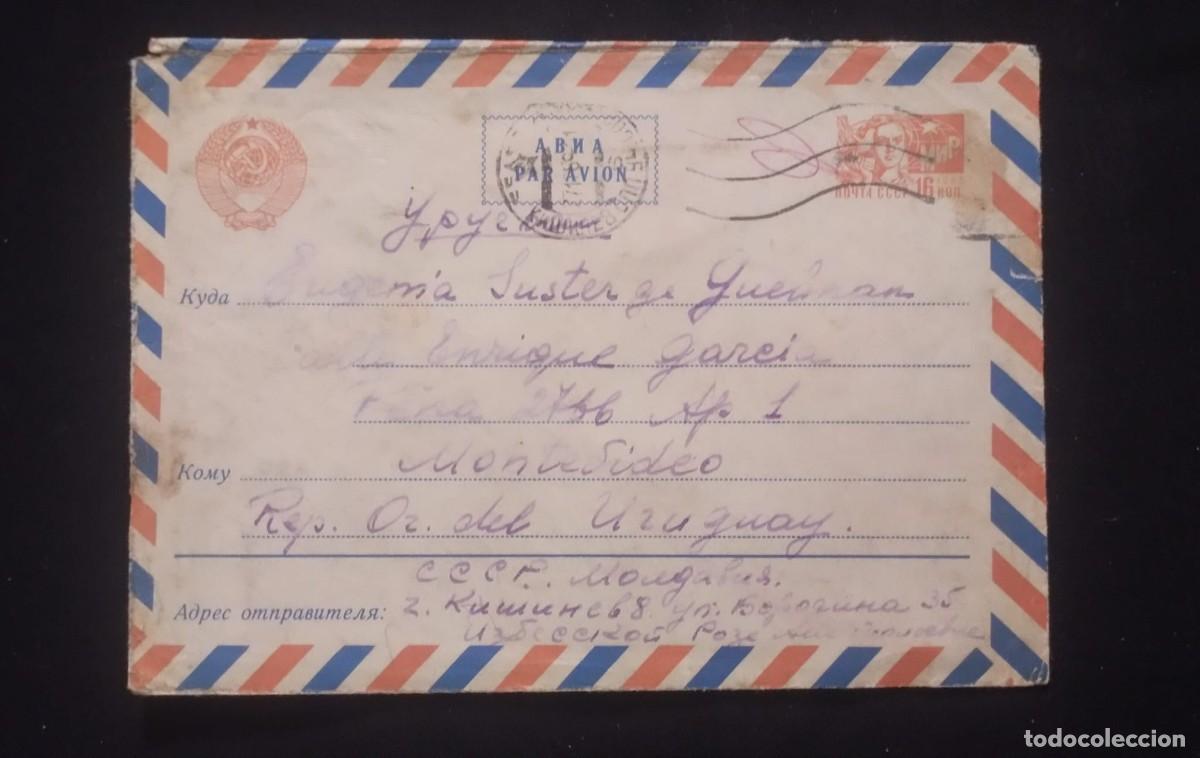 АВИА
PAR AVION
МИР
16
ПОЧТА СССР КОП
КИШИНЕВ
Куда Eugenia Suster de
Enrique Garcia
2766 Ap 1
Кому Montevideo
Rep. Or. del Uruguay.
СССР. Молдавия.
Адрес отправителя: г. Кишинев 8. ул. 35
todocoleccion